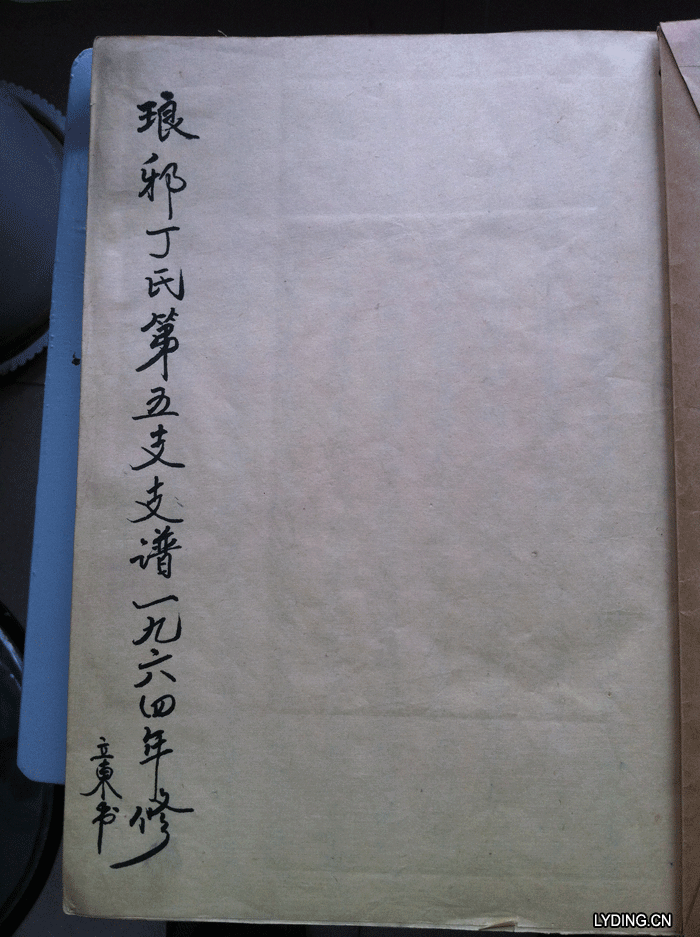 琅邪丁氏第五支支谱一九六四年修
立東书
LYDING.CN